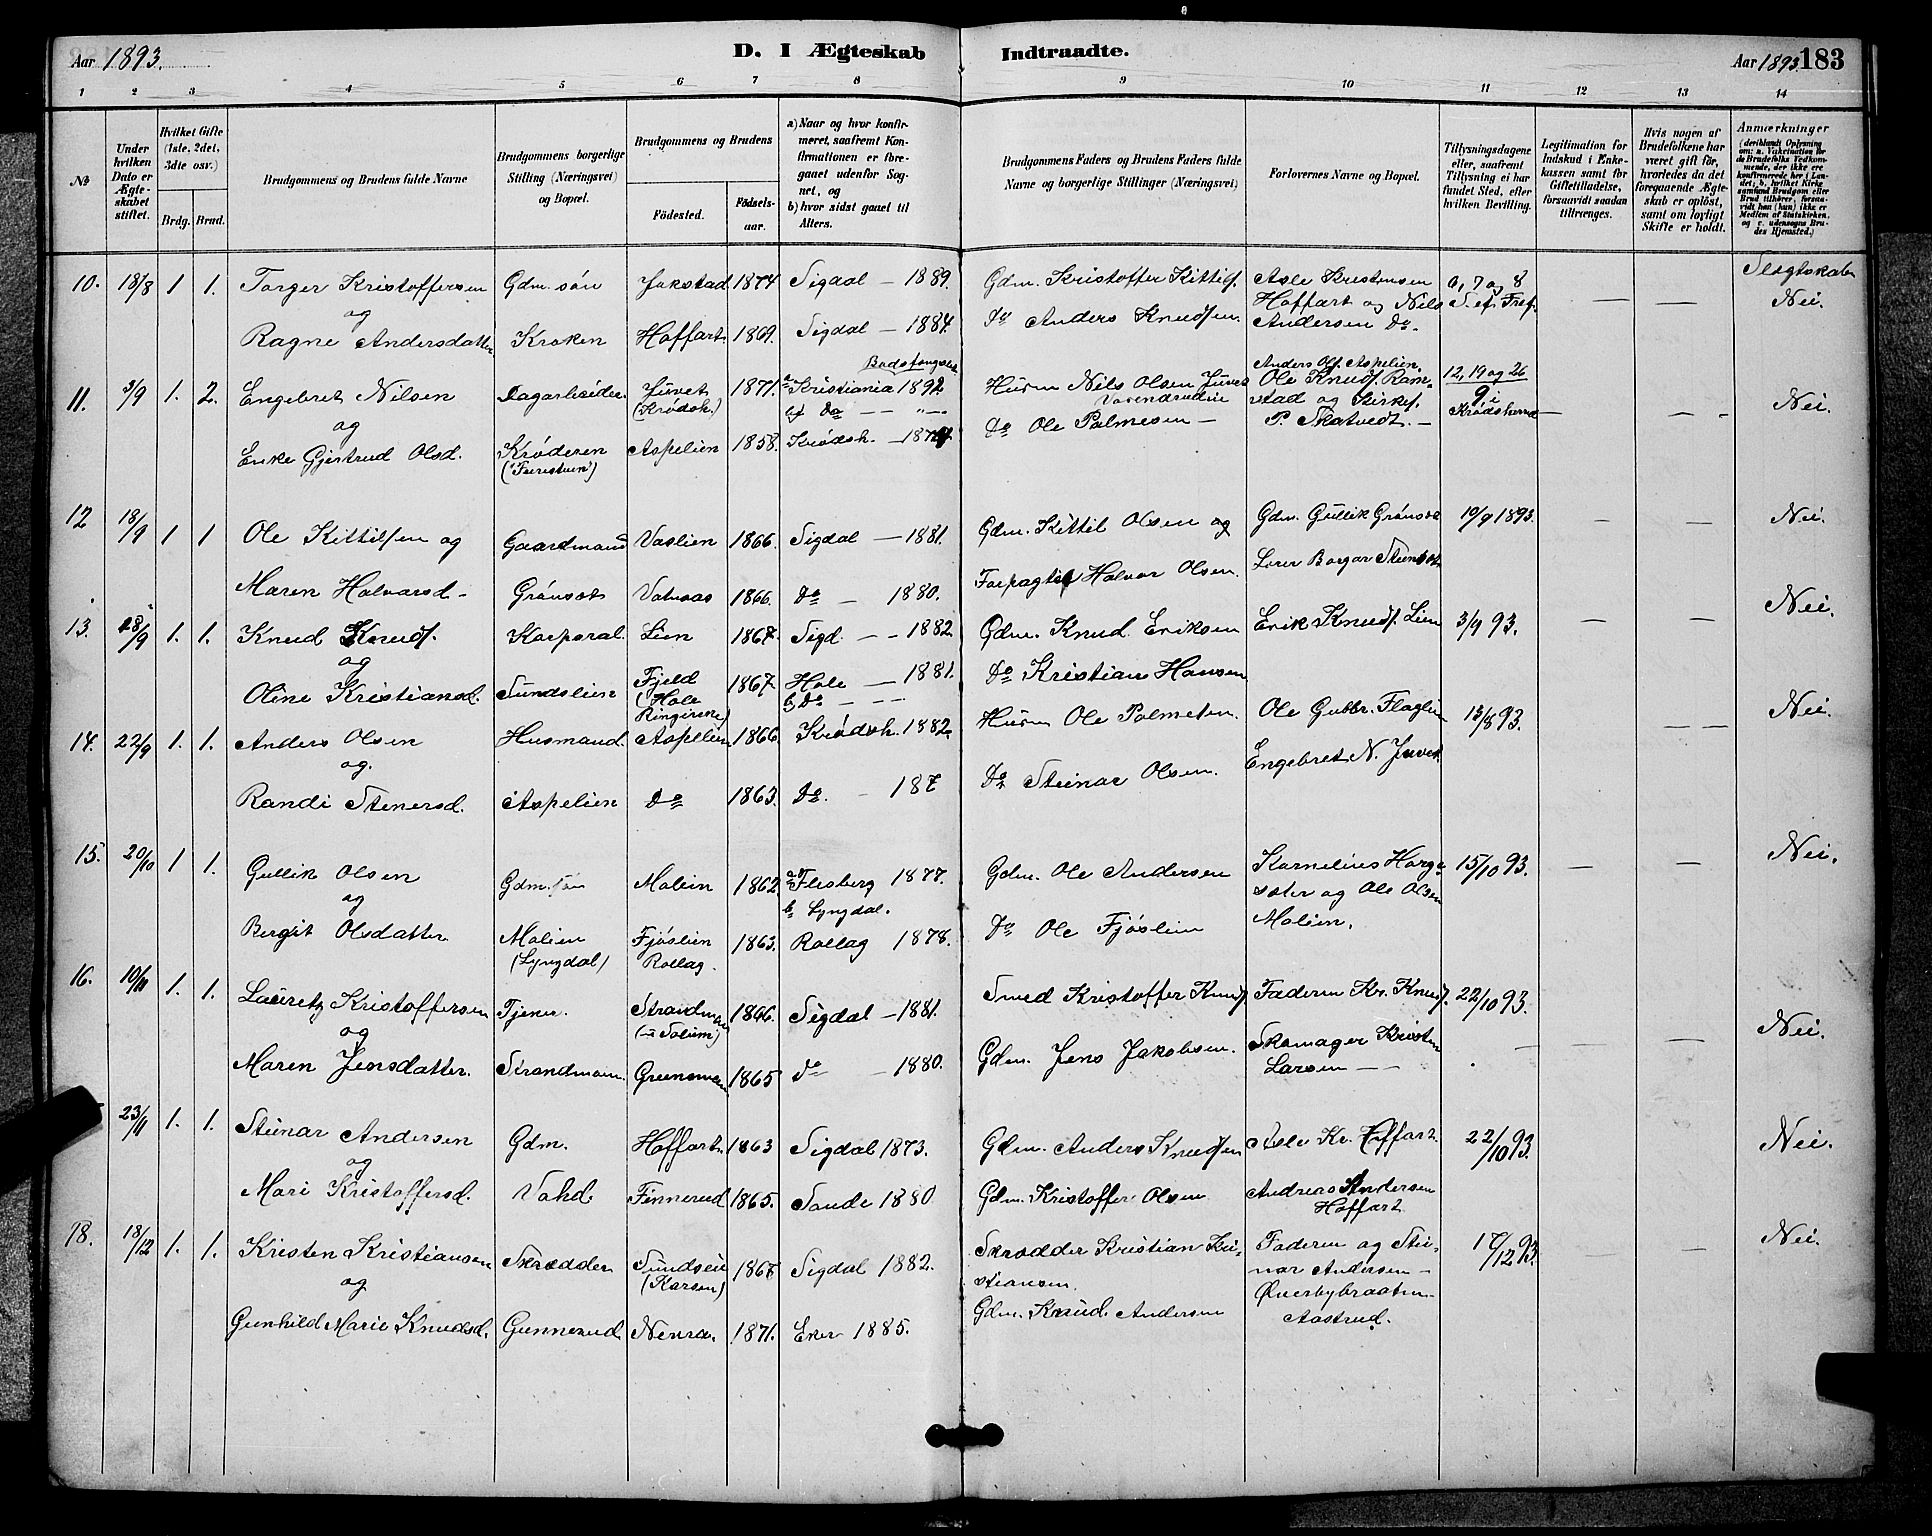 Aar 1893.
D. I Ægteskab
Indtraadte.
Aar 1893.
183
1 2 3 4 5 6 7 8 9 10 11 12 13 14
No
Under hvilken Dato er Ægteskabet stiftet.
Hvilket Gifte (1ste, 2det, 3die osv.)
Brdg. Brud.
Brudgommens og Brudens fulde Navne
Brudgommens borgerlige Stilling (Næringsvei) og Bopæl.
Brudgommens og Brudens
Fødested.
Fødselsaar.
a) Naar og hvor konfirmeret, saafremt Konfirmationen er foregaaet udenfor Sognet, og
b) hvor sidst gaaet til Alters.
Brudgommens Faders og Brudens Faders fulde Navne og borgerlige Stillinger (Næringsvei)
Forlovernes Navne og Bopæl.
Tillysningsdagene eller, saafremt Tillysning ei har fundet Sted, efter hvilken Bevilling.
Legitimation for Indskud i Enkekassen samt for Giftetilladelse, forsaavidt saadan tiltrænges.
Hvis nogen af Brudefolkene har været gift før, hvorledes da det foregaaende Ægteskab er opløst, samt om lovligt Skifte er holdt.
Anmærkninger (deriblandt Oplysning om: a. Vakcination for de Brudefolks Vedkommende, der ikke ere konfirmerede her i Landet; b. hvilket Kirkesamfund Brudgom eller Brud tilhører, forsaavidt han (hun) ikke er Medlem af Statskirken, og c. udensogns Brudes Hjemsted.)
10. 18/8 1 1. Torger Kristoffersen Gdm. søn Jokstad 1874 Sigdal — 1889. Gdm. Kristoffer Kittilf. Asle Kristensen 6, 7 og 8 Slegtskab
og Hoffart og Nils S. ef. Tref. — — Nei.
Ragne Andersdatter Kroken Hoffart 1869. Sigdal — 1884. Do Anders Knudsen. Andersen Do.
11. 3/9 1. 2. Engebret Nilsen Dagarbeider Juvet 1871. a Kristiania 1892 Husm Nils Olsen Juvet Anders Olf. Aspelien. 12, 19 og 26
(Krødsh.) b Do — — " — Ole Knudf. Ramstad og Kirkes. 9, i Krødsherred — — — Nei.
og
Enke Gjertrud Olsd. Krøderen Aspelien 1858. Krødsh. — 187 Do Ole Palmesen — P. Skatvedt. —
12 18/9 1 1 Ole Kittilsen og Gaardmand Vaslien 1866. Sigdal — 1881. Gdm. Kittil Olsen og Gdm. Gullik Grønset 10/9 1893. — — Nei.
Maren Halvarsd — Grønset Vatnaas 1866. Do — 1880. Forpagter Halvor Olsen. Lærer Borgar
13. 28/9 1. 1. Knud Knudf. Korporal Lien 1867. Sigd. — — 1882. Gdm. Knud Eriksen Erik Knudf. Lien 3/9 93. — — Nei.
og
Oline Kristiansd. Sundslien Fjeld 1867. Hole — 1881. Do Kristian Hansen
(Hole Ringerike) b Do — — —
14. 22/9 1. 1. Anders Olsen Husmand. Aspelien 1866. Krødsh. 1882. Husm Ole Palmesen. Ole Gulbr. 13/8 93. — — Nei.
og.
Randi Stenersd. Aspelien Do 1863. Do. — 187 Do Steinar Olsen. Engebret N. Juvet
15. 20/10 1 1. Gullik Olsen Gdm. søn Molien 1862 a Flesberg 1877. Gdm. Ole Andersen Kornelius Horgesæter og Ole Olsen 15/10 93. — — Nei.
og b Lyngdal.
Bergit Olsdatter Molien Fjøslien 1863. Rollag 1878. Do Ole Fjøslien Molien.
(Lyngdal) Rollag.
16. 10/11 1. 1. Lauretz Kristoffersen Tjener. Strandmoen 1866. Sigdal — 1881. Smed Kristoffer Knudf. Faderen Kr. Knudf. 22/10 93. — — Nei.
og (Solum)
Maren Jensdatter. Strandmoen. Grensmoen 1865 Do — 1880. Gdm. Jens Jakobsen. Skomager Kristen Larsen — —
23/11 1. 1. Steinar Andersen Gdm. Hoffart 1863 Sigdal 1873. Gdm. Anders Knudsen Asle Kr. Hoffart 22/10 93. Nei.
og
Mari Kristoffersd. Vahd Finnerud 1865. Sande 1880 Gdm. Kristoffer Olsen Andreas Andersen Hoffart
18. 18/12 1. 1. Kristen Kristiansen Skrædder Sundseie 1867 Sigdal 1882. Skrædder Kristian Kristiansen. Faderen og Steinar Andersen — 17/12 93. — — Nei.
og (Karsen)
Gunhild Marie Knudsd. Gunnerud Nenra. 1871. Eker 1885. Gdm. Knud Andersen Øverbybraaten Aastrud.